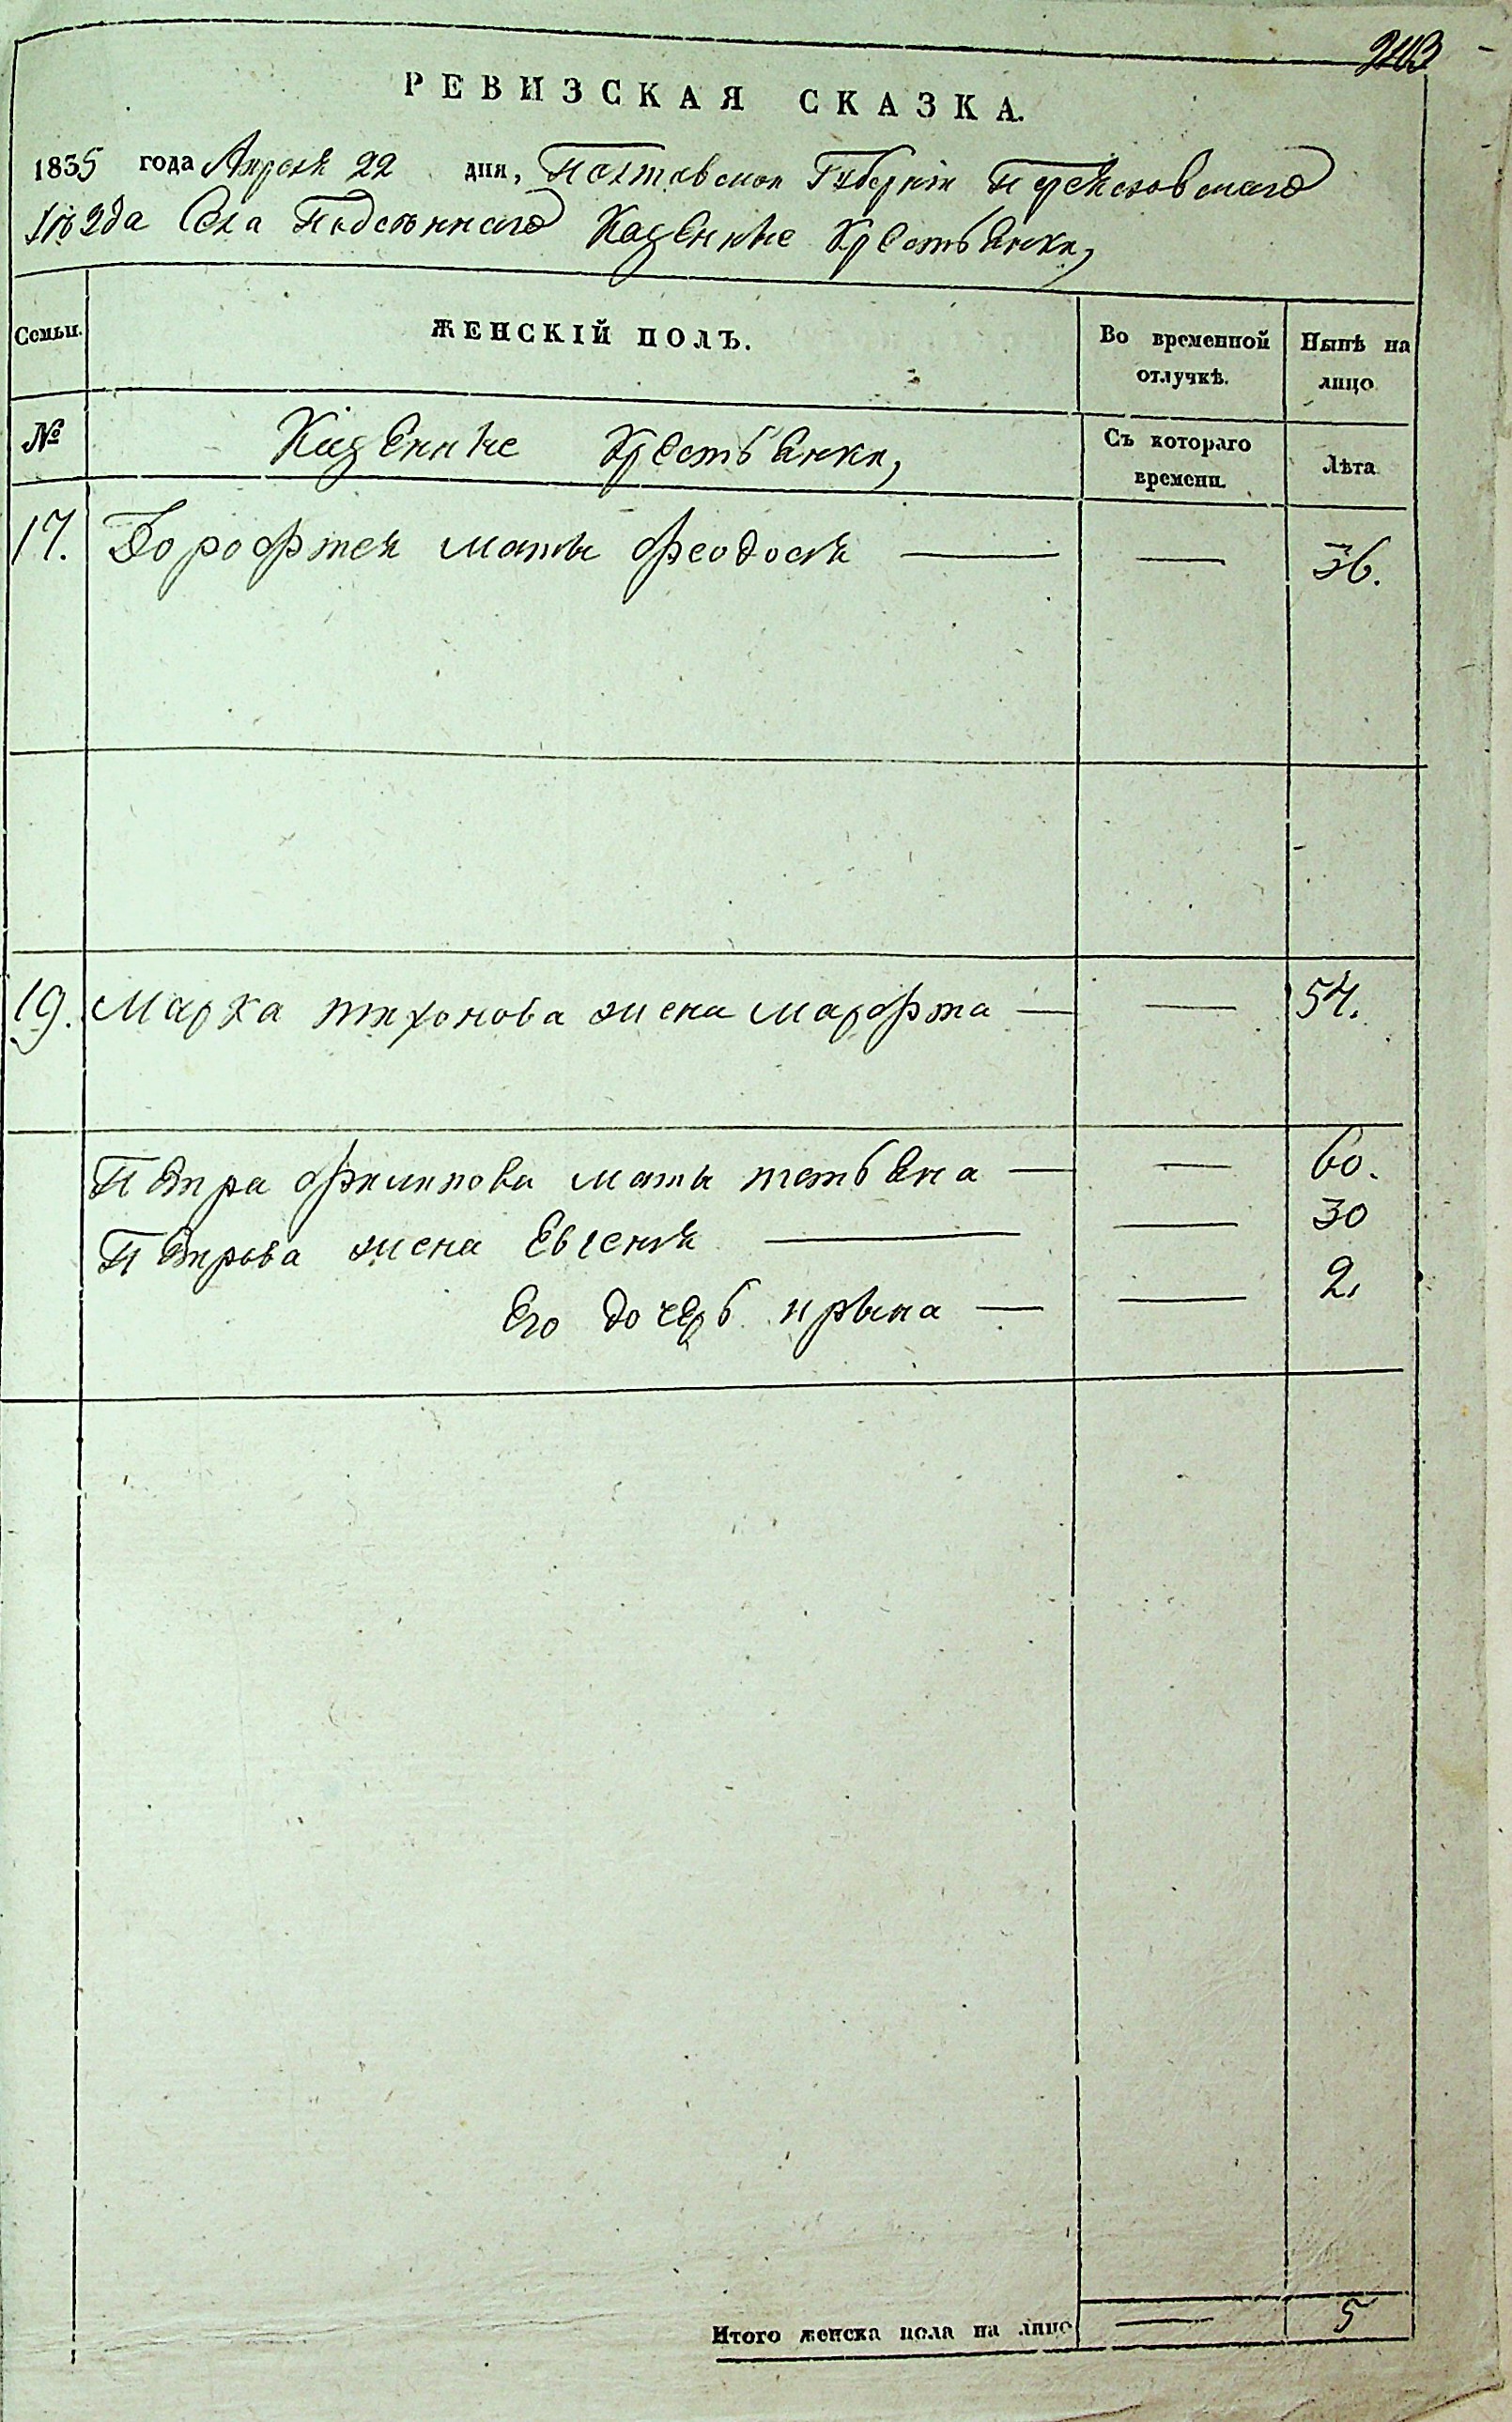 243
РЕВИЗСКАЯ СКАЗКА.
1835 года Апреля 22 дня, Полтавской Губернiи Переясловскаго
уѣзда Села Подсѣннаго Казенные Крестьянки,
Семьи. ЖЕНСКІЙ ПОЛЪ. Во временной отлучкѣ. Нынѣ на лицо
№ Казенные Крестьянки, Съ котораго времени. Лѣта
17. Дорофтея мать феодосия — — 36.
19. Марка тихонова жена марфта — — 54.
Петра филипова мать татьяна — — 60.
Петрова жена Евгения — — 30
Его дочерь ирына — — 2.
Итого женска пола на лицо — 5